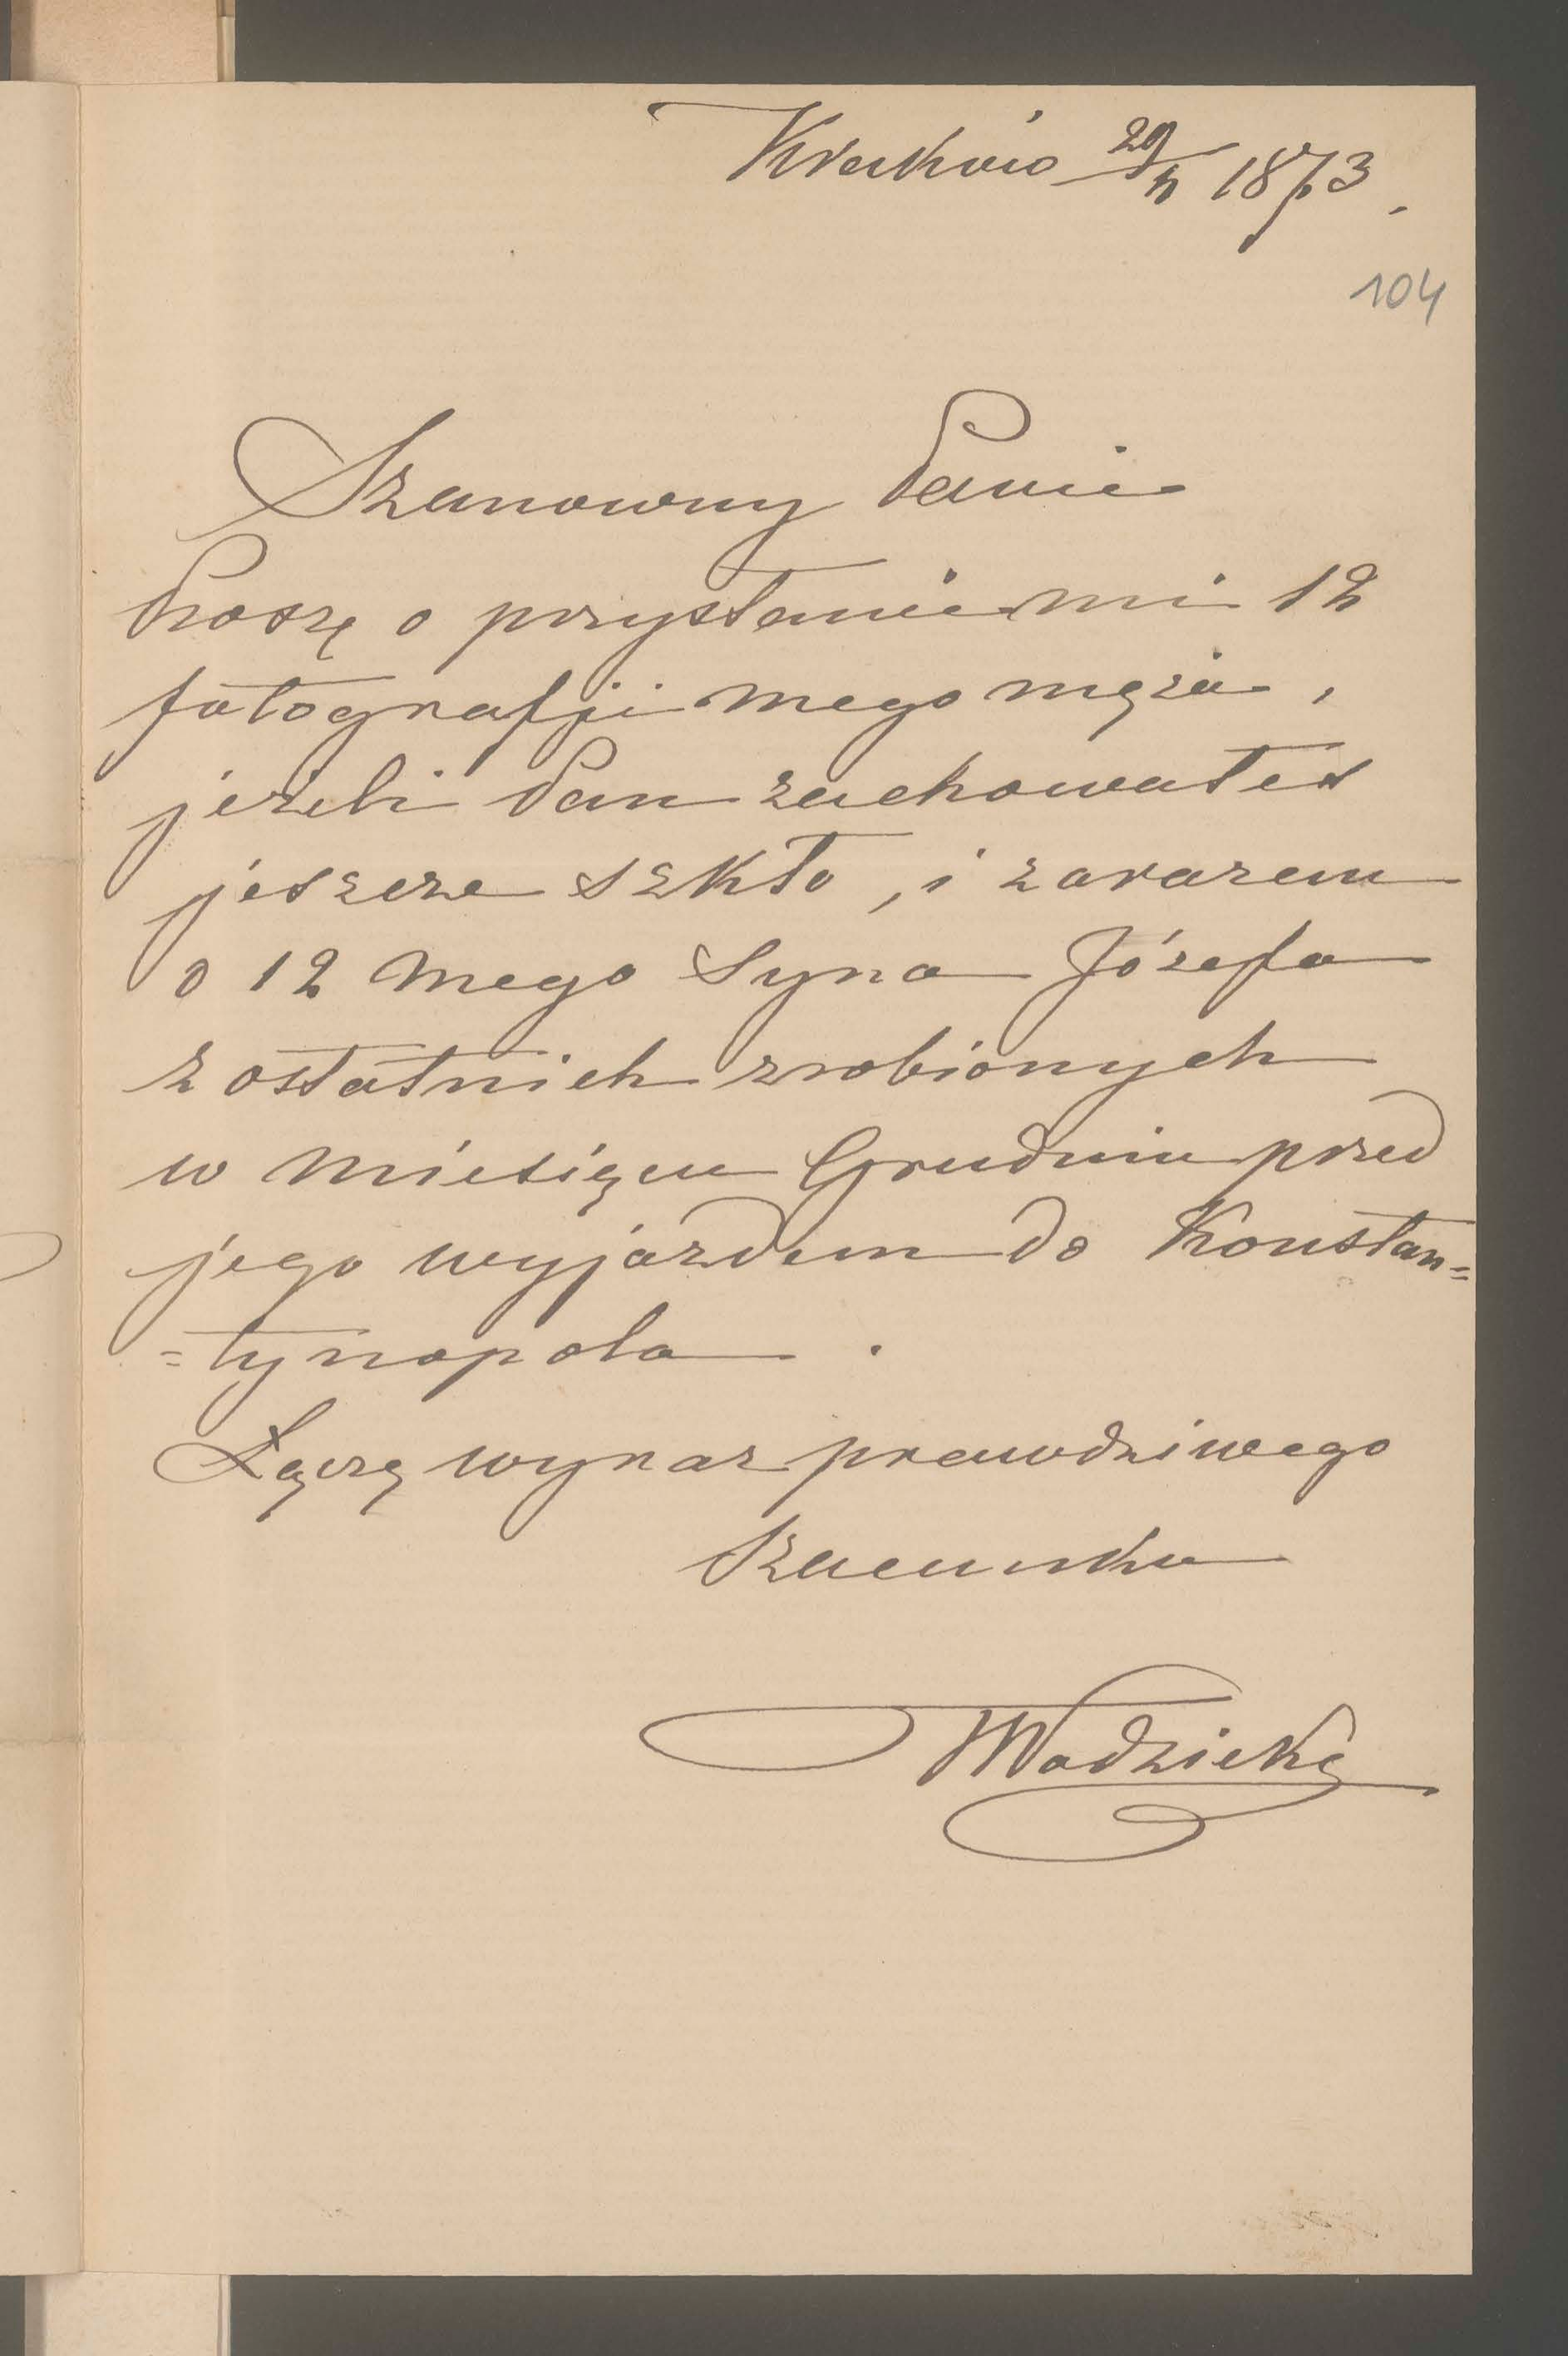 Kraków 29/4 1873.
104
Szanowny Panie
Proszę o przysłanie mi 12
fotografji mego męża,
jeżeli Pan zachowałeś
jeszcze szkło, i zarazem
o 12 mego Syna Józefa
z ostatnich zrobionych
w miesiącu Grudniu przed
jego wyjazdem do Konstan=
=tynopola.
Łączę wyraz prawdziwego
Szacunku
Wodzicka